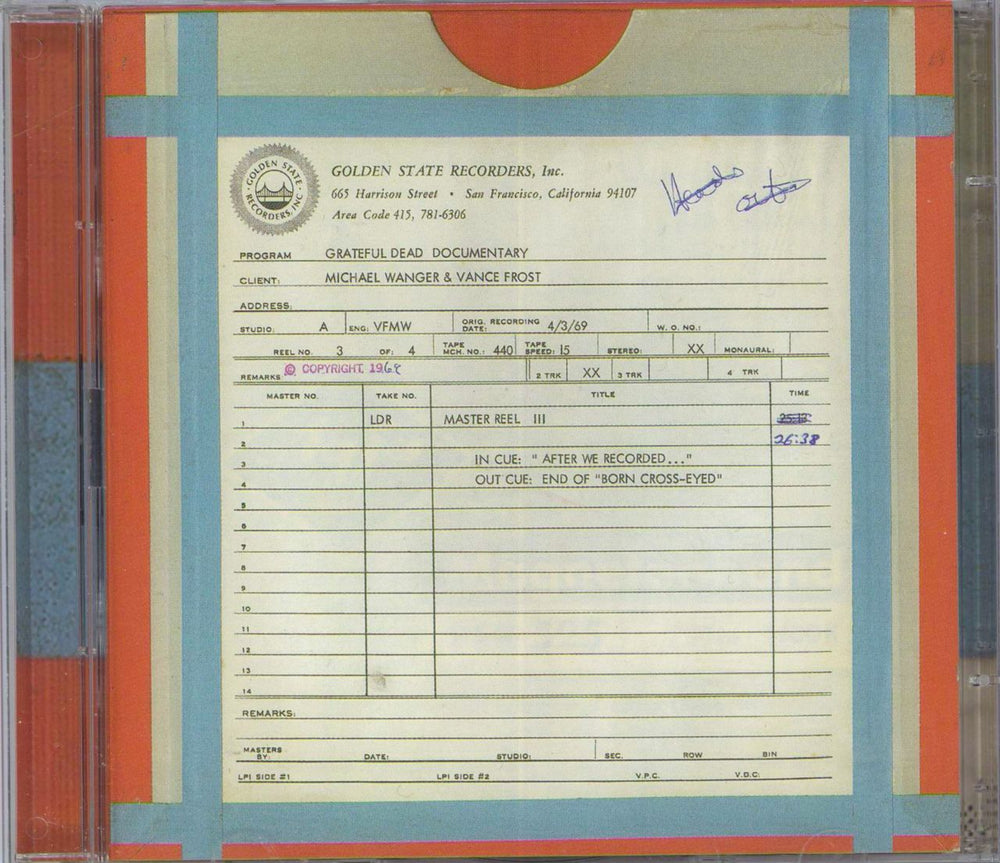 GOLDEN STATE
RECORDERS, INC
GOLDEN STATE RECORDERS, Inc.
665 Harrison Street • San Francisco, California 94107
Area Code 415, 781-6306
Heads
out
PROGRAM GRATEFUL DEAD DOCUMENTARY
CLIENT: MICHAEL WANGER & VANCE FROST
ADDRESS:
STUDIO: A ENG: VFMW ORIG. RECORDING DATE: 4/3/69 W. O. NO.:
REEL NO. 3 OF: 4 TAPE MCH. NO.: 440 TAPE SPEED: 15 STEREO: XX MONAURAL:
REMARKS © COPYRIGHT 1969 2 TRK XX 3 TRK 4 TRK
MASTER NO. TAKE NO. TITLE TIME
1 LDR MASTER REEL III 25:13
2 26:38
3 IN CUE: " AFTER WE RECORDED..."
4 OUT CUE: END OF "BORN CROSS-EYED"
5
6
7
8
9
10
11
12
13
14
REMARKS:
MASTERS BY: DATE: STUDIO: SEC. ROW BIN
LPI SIDE #1 LPI SIDE #2 V.P.C. V.D.C.